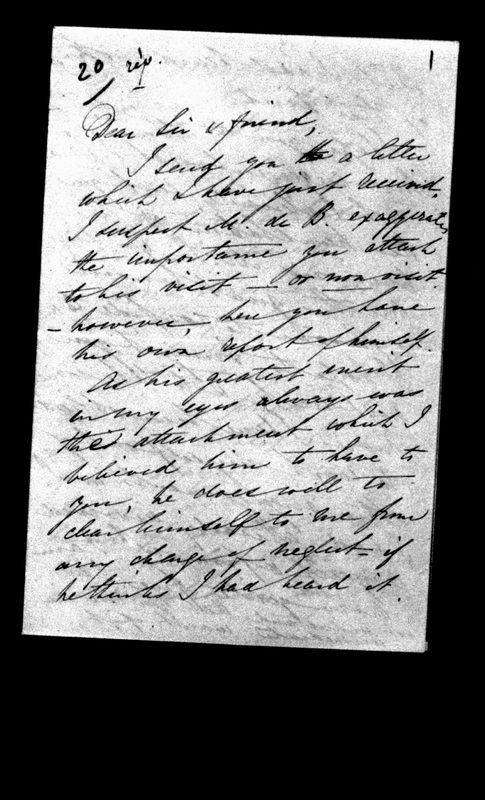 20 rép. 1
Dear Sir & friend,
I send you a letter
which I have just received.
I suspect M. de B. exaggerates
the importance you attach
to his visit — or non visit
— however, here you have
his own report of himself.
As his greatest merit
in my eyes always was
the attachment which I
believed him to have to
you, he does well to
clear himself to me from
any charge of neglect — if
he thinks I had heard it.